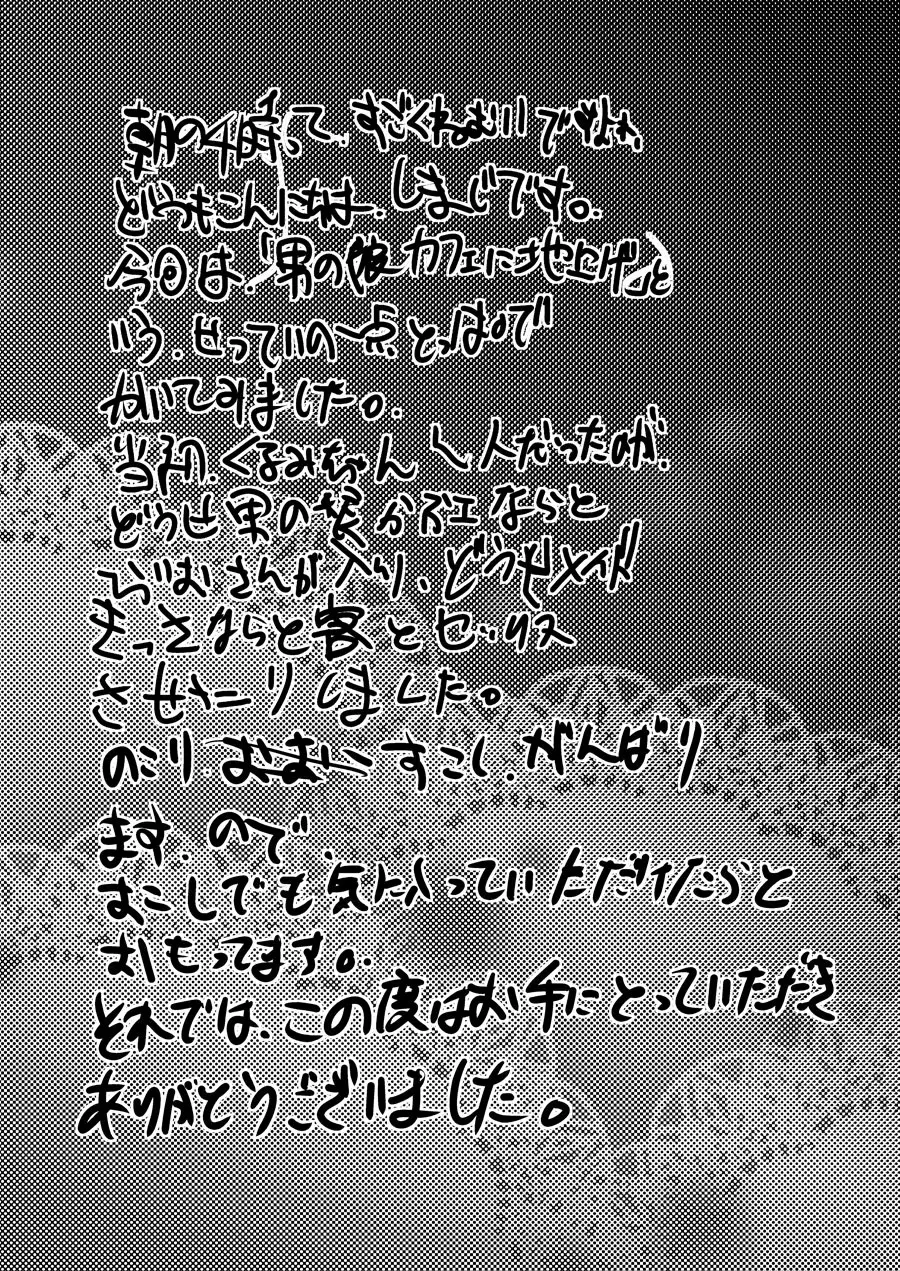 朝の4時って、すごくねむいですよね、
どうもこんにちは、しまじです。
今回は、「男の娘カフェに地上げ」と
いう、せっていの一点とっぱで
かいてみました。
当初、くるみちゃん1人だったのが、
どうせ男の娘かふェならと
らむさんが入り、どうせメイド
きっさならと客とセックス
させたりしました。
のこり すこし、がんばり
ます、ので、
すこしでも気に入っていただけたらと
おもってます。
それでは、この度はお手にとっていただき
ありがとうございました。